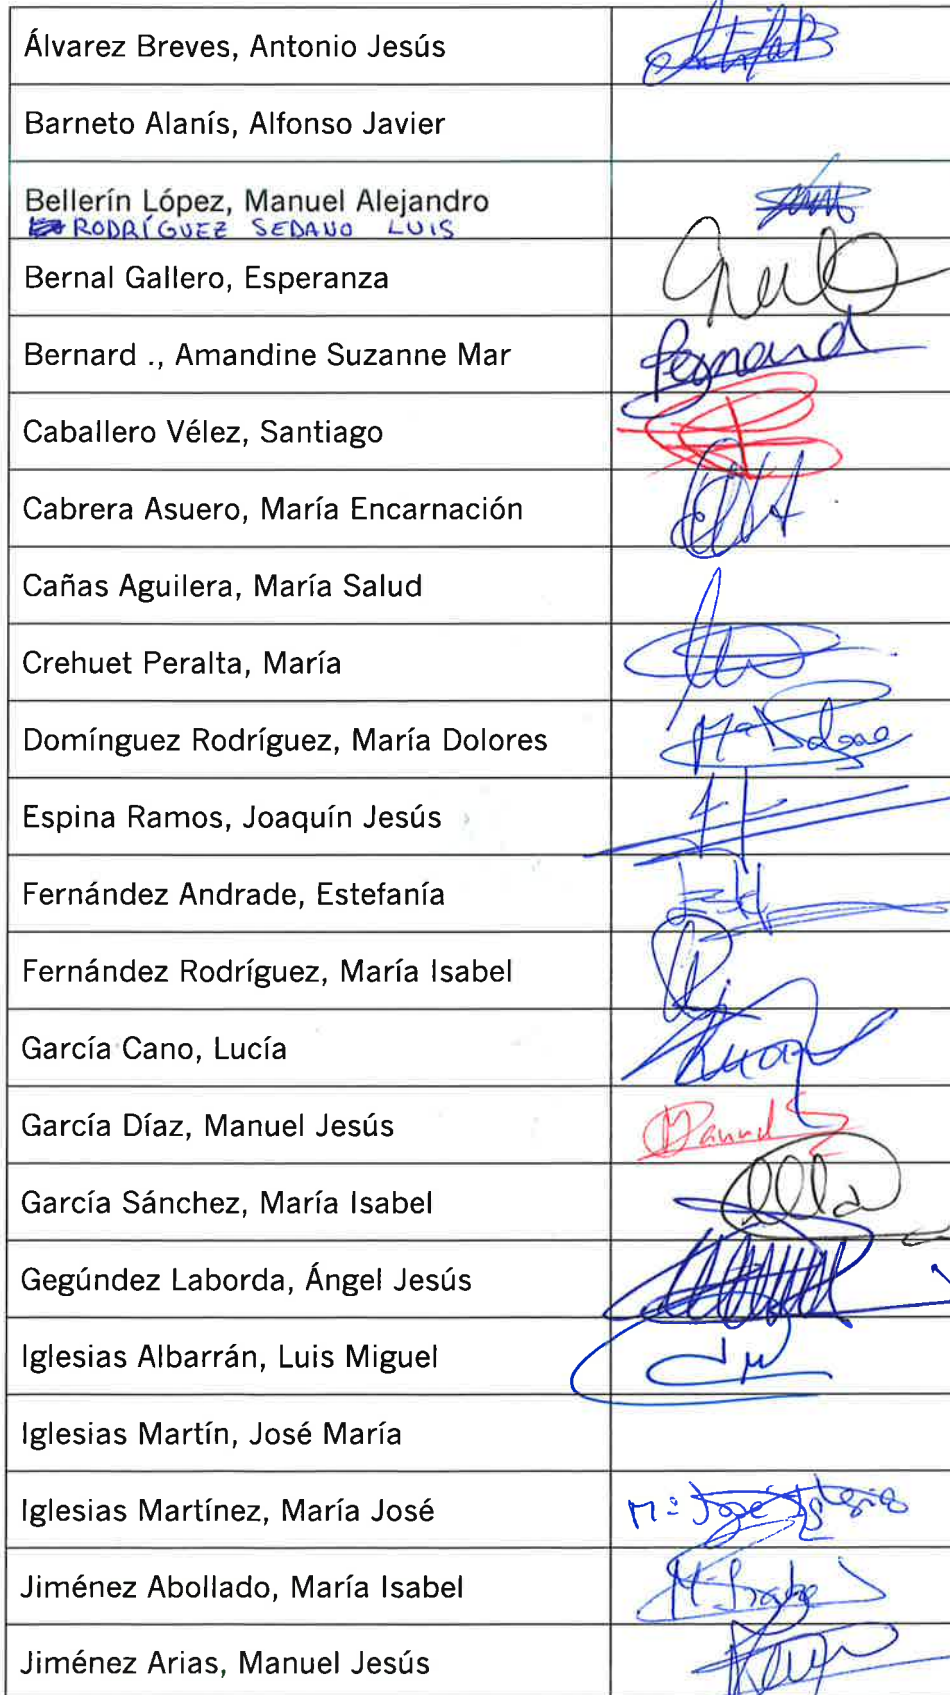 Álvarez Breves, Antonio Jesús
Barneto Alanís, Alfonso Javier
Bellerín López, Manuel Alejandro
RODRÍGUEZ SEDANO LUIS
Bernal Gallero, Esperanza
Bernard ., Amandine Suzanne Mar
Bernard
Caballero Vélez, Santiago
Cabrera Asuero, María Encarnación
Cañas Aguilera, María Salud
Crehuet Peralta, María
Domínguez Rodríguez, María Dolores
Espina Ramos, Joaquín Jesús
Fernández Andrade, Estefanía
Fernández Rodríguez, María Isabel
García Cano, Lucía
García Díaz, Manuel Jesús
Manuel
García Sánchez, María Isabel
Gegúndez Laborda, Ángel Jesús
Iglesias Albarrán, Luis Miguel
Iglesias Martín, José María
Iglesias Martínez, María José
Mª José Iglesias
Jiménez Abollado, María Isabel
Jiménez Arias, Manuel Jesús